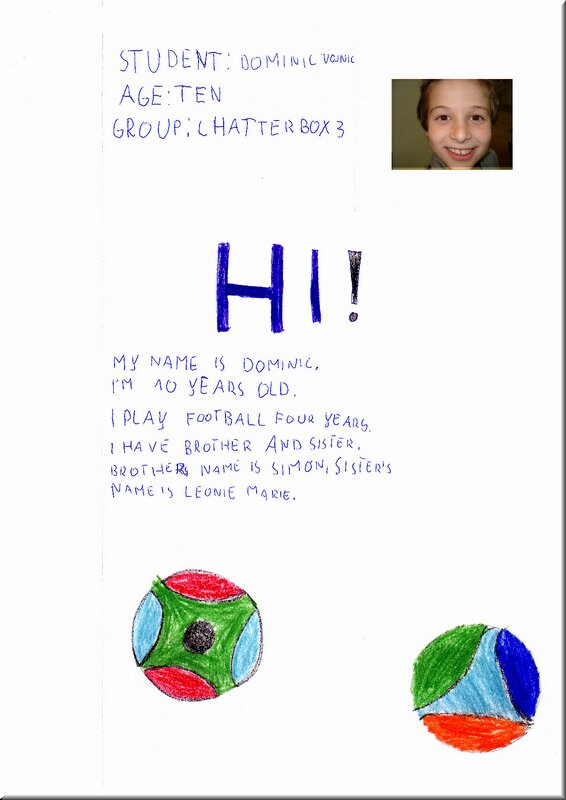 STUDENT: DOMINIC VOJNIC
AGE: TEN
GROUP: CHATTERBOX 3
HI!
MY NAME IS DOMINIC.
I'M 10 YEARS OLD.
I PLAY FOOTBALL FOUR YEARS.
I HAVE BROTHER AND SISTER.
BROTHERS NAME IS SIMON, SISTER'S
NAME IS LEONIE MARIE.